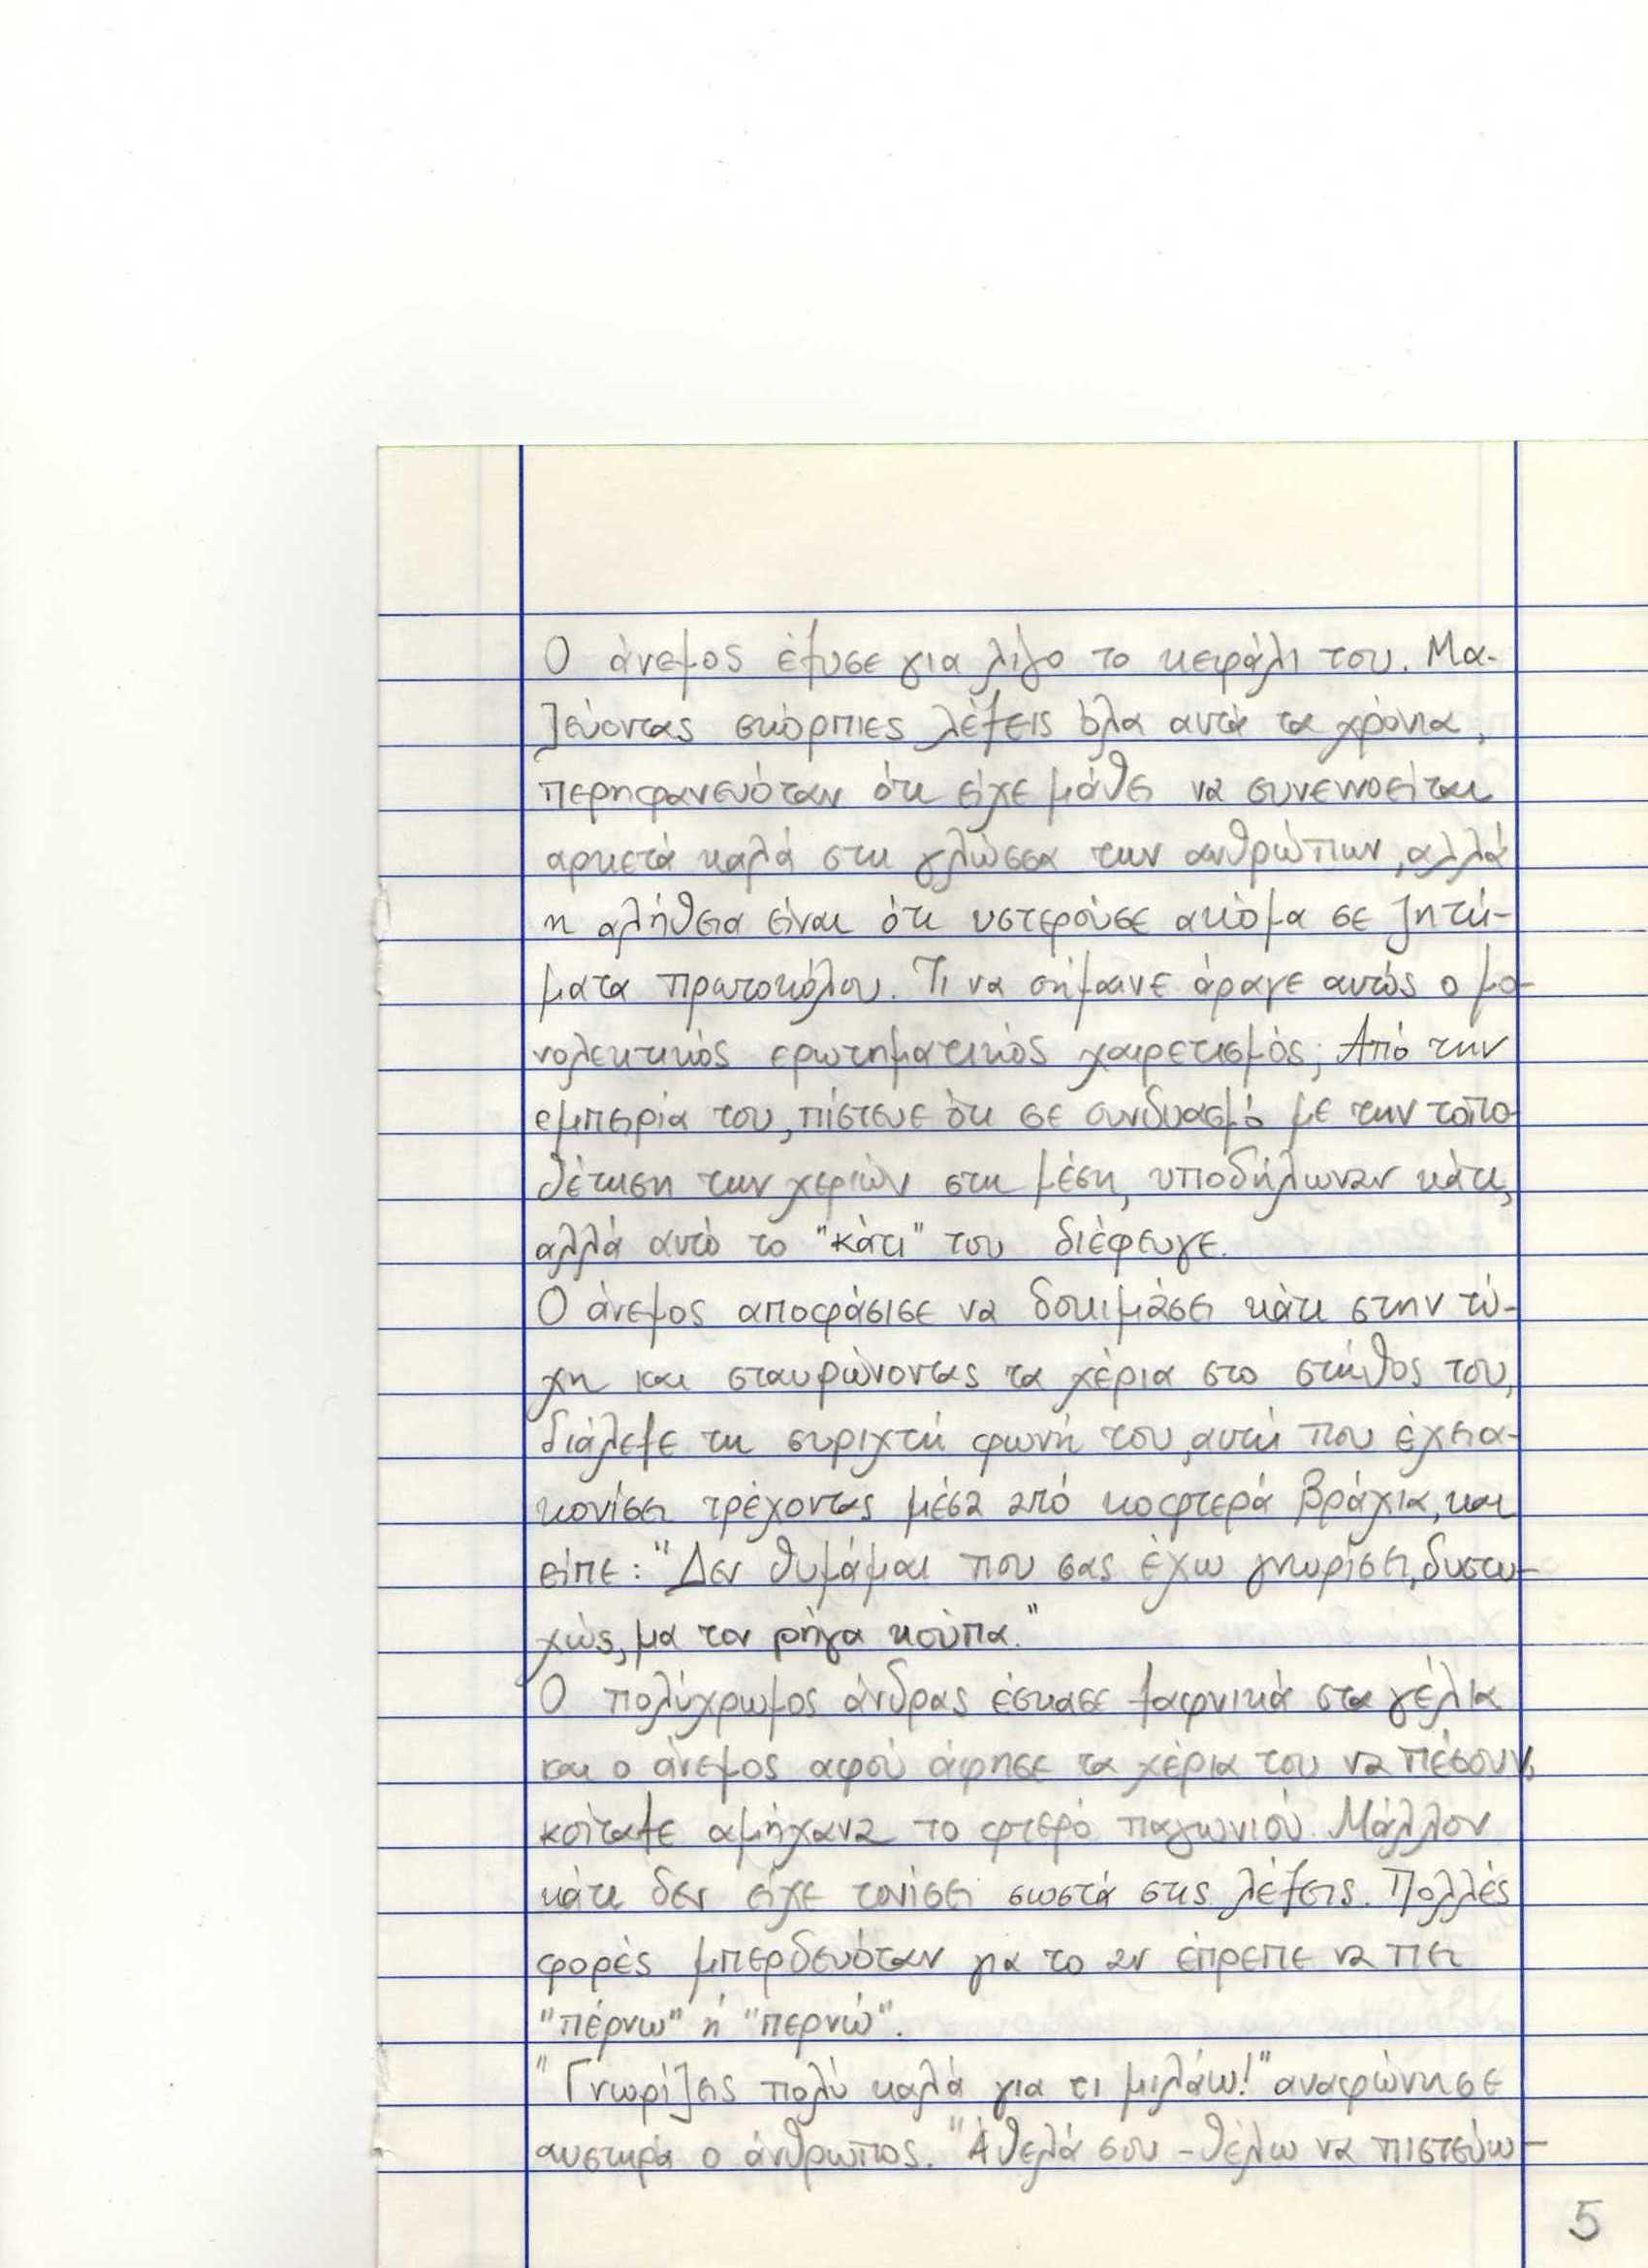 Ο άνεμος έξυσε για λίγο το κεφάλι του. Μα-
ζεύοντας σκόρπιες λέξεις όλα αυτά τα χρόνια,
περηφανευόταν ότι είχε μάθει να συνεννοείται
αρκετά καλά στη γλώσσα των ανθρώπων, αλλά
η αλήθεια είναι ότι υστερούσε ακόμα σε ζητή-
ματα πρωτοκόλου. Τι να σήμαινε άραγε αυτός ο μο-
νολεκτικός ερωτηματικός χαιρετισμός; Από την
εμπειρία του, πίστευε ότι σε συνδυασμό με την τοπο-
θέτηση των χεριών στη μέση, υποδήλωναν κάτι,
αλλά αυτό το "κάτι" του διέφευγε.
Ο άνεμος αποφάσισε να δοκιμάσει κάτι στην τύ-
χη και σταυρώνοντας τα χέρια στο στήθος του,
διάλεξε τη συριχτή φωνή του, αυτή που έχει α-
κονίσει τρέχοντας μέσα από κοφτερά βράχια, και
είπε: "Δεν θυμάμαι που σας έχω γνωρίσει, δυστυ-
χώς, μα τον ρήγα κούπα."
Ο πολύχρωμος άνδρας έσκασε ξαφνικά στα γέλια
και ο άνεμος αφού άφησε τα χέρια του να πέσουν,
κοίταξε αμήχανα το φτερό παγωνιού. Μάλλον
κάτι δεν είχε τονίσει σωστά στις λέξεις. Πολλές
φορές μπερδευόταν για το αν έπρεπε να πει
"πέρνω" ή "περνώ".
"Γνωρίζεις πολύ καλά για τι μιλάω!" αναφώνησε
αυστηρά ο άνθρωπος. "Άθελά σου - θέλω να πιστεύω -
5